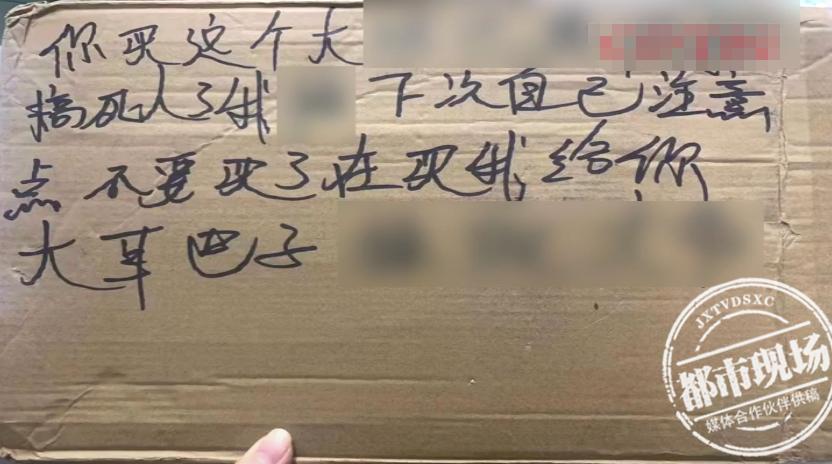 你买这个大
搞死人了我 下次自己注意
点 不要买了在买我给你
大耳巴子
JXTVDSXC
都市现场
媒体合作伙伴供稿